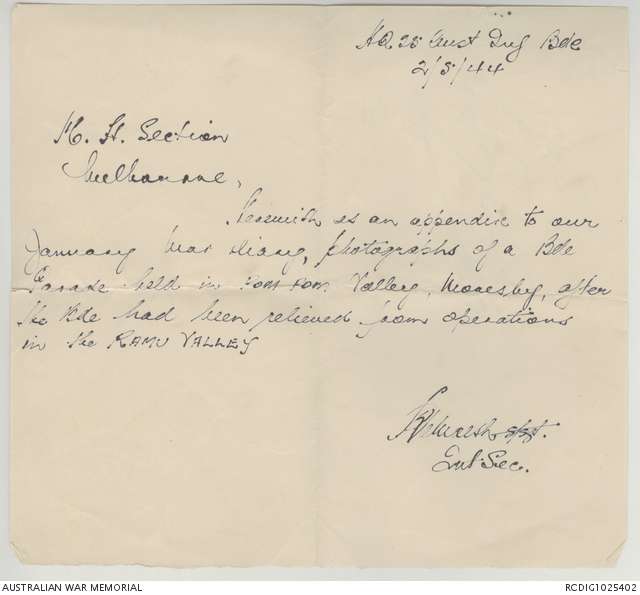 HQ 25 Aust Inf Bde
2/3/44
M. H. Section
Melbourne,
Herewith as an appendix to our
January War Diary, photographs of a Bde
Parade held in Pom Pom Valley, Moresby, after
the Bde had been relieved from operations
in the RAMU VALLEY
S/Sgt.
Int Sec.
AUSTRALIAN WAR MEMORIAL
RCDIG1025402